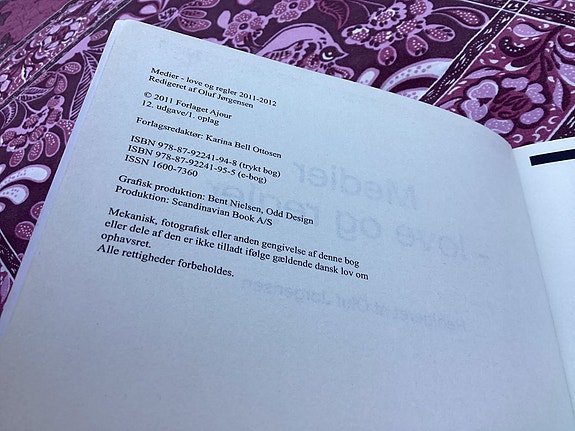 Medier - love og regler 2011-2012
Redigeret af Oluf Jørgensen
© 2011 Forlaget Ajour
12. udgave/1. oplag
Forlagsredaktør: Karina Bell Ottosen
ISBN 978-87-92241-94-8 (trykt bog)
ISBN 978-87-92241-95-5 (e-bog)
ISSN 1600-7360
Grafisk produktion: Bent Nielsen, Odd Design
Produktion: Scandinavian Book A/S
Mekanisk, fotografisk eller anden gengivelse af denne bog
eller dele af den er ikke tilladt ifølge gældende dansk lov om
ophavsret.
Alle rettigheder forbeholdes.
Medier
- love og regler
Redigeret af Oluf Jørgensen